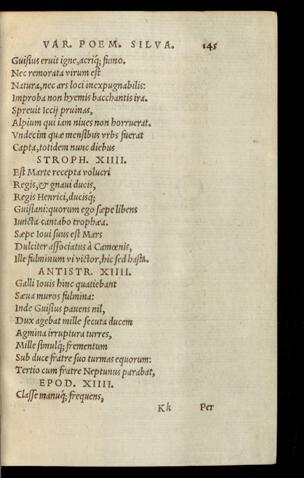 VAR. POEM. SILVA. 145
Guisius eruit igne, acriq; fumo.
Nec remorata virum est
Natura, nec ars loci inexpugnabilis:
Improba non hyemis bacchantis ira.
Spreuit Iccij pruinas,
Alpium qui iam niues non horruerat.
Vndecim quæ mensibus vrbs fuerat
Capta, totidem nunc diebus
STROPH. XIIII.
Est Marte recepta volucri
Regis, & gnaui ducis,
Regis Henrici, ducisq;
Guisiani: quorum ego sæpe libens
Iuncta cantabo trophæa.
Sæpe Ioui suus est Mars
Dulciter associatus à Camœnis,
Ille fulminum vi victor, hic sed hasta.
ANTISTR. XIIII.
Galli Iouis hinc quatiebant
Sæua muros fulmina:
Inde Guisius pauens nil,
Dux agebat mille secuta ducem
Agmina irruptura turres,
Mille simulq; frementum
Sub duce fratre suo turmas equorum:
Tertio cum fratre Neptunus parabat,
EPOD. XIIII.
Classe manuq; frequens,
Kk Per